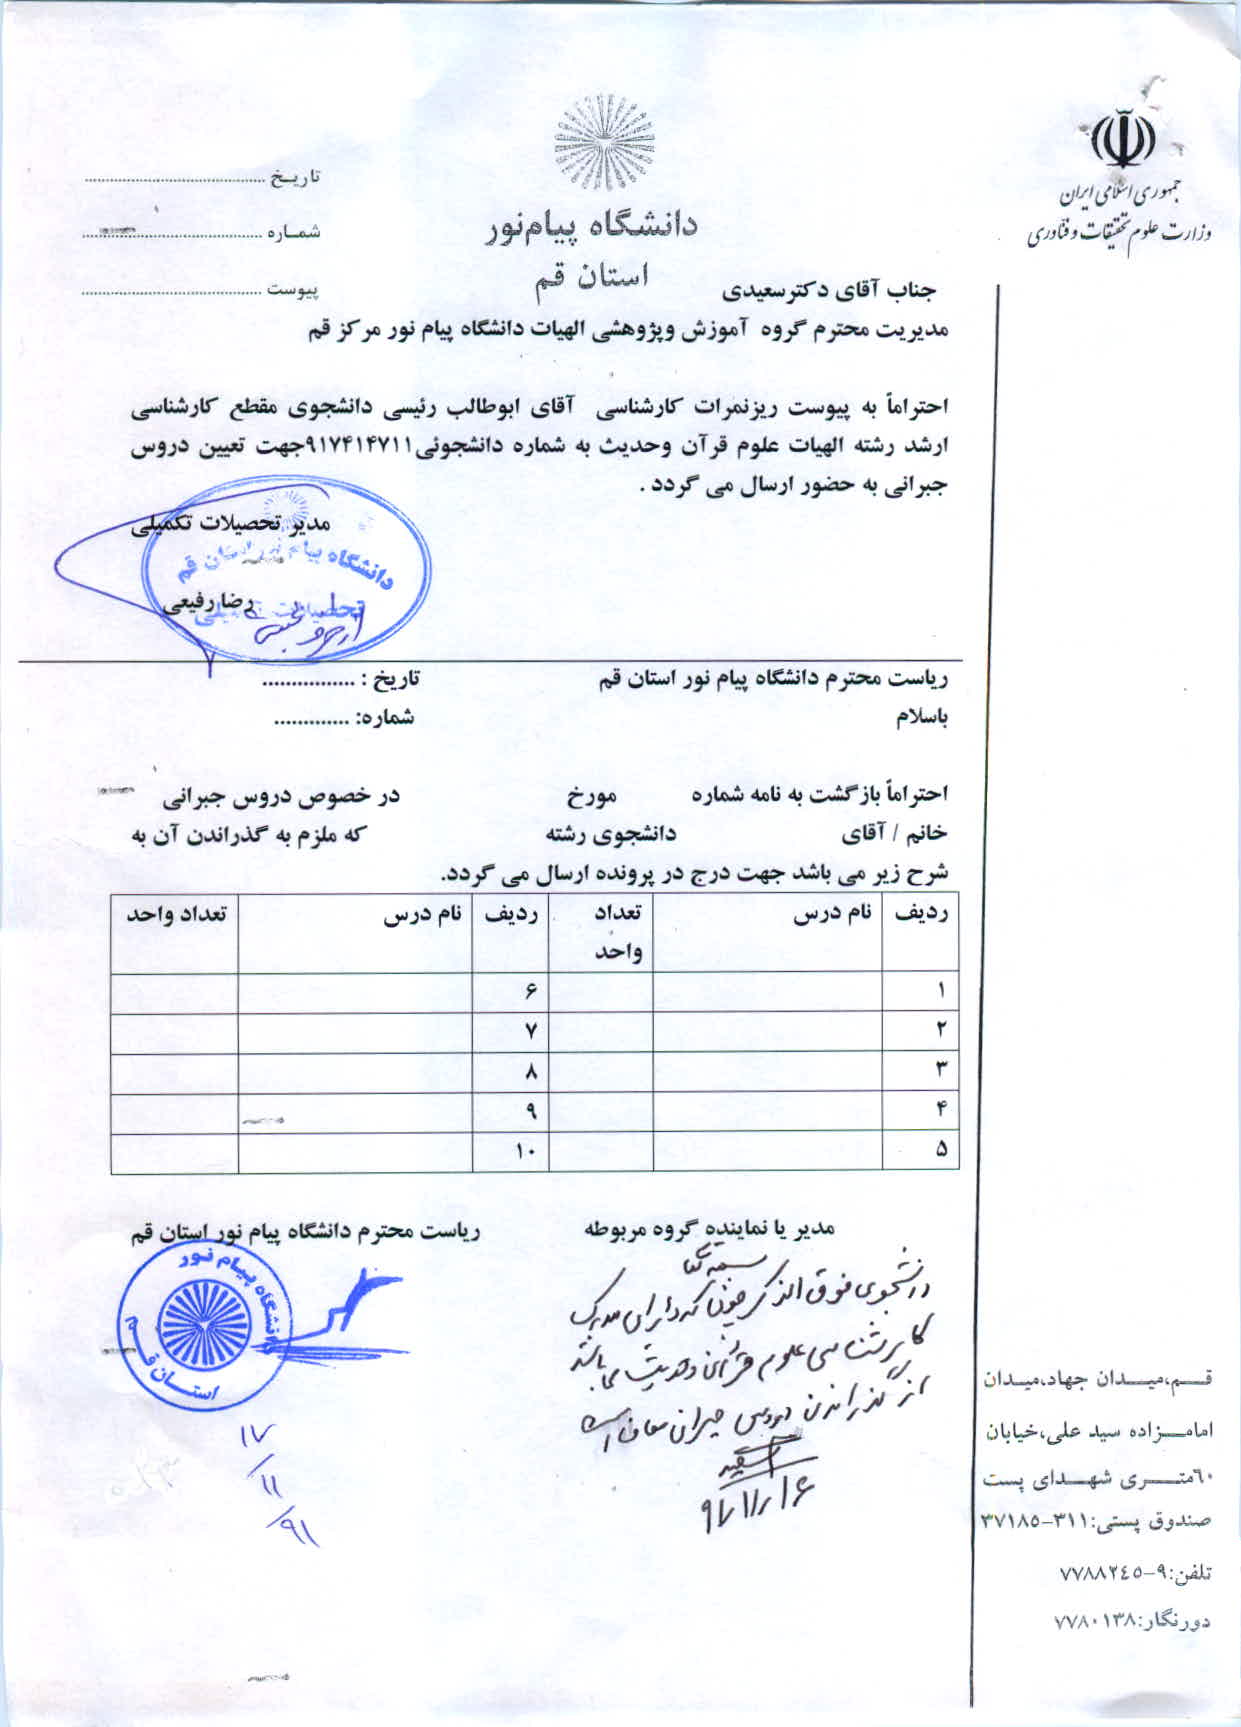 جمهوری اسلامی ایران
وزارت علوم تحقیقات و فناوری
دانشگاه پیام‌نور
استان قم
تاریخ ........................................
شماره ........................................
پیوست ........................................
جناب آقای دکترسعیدی
مدیریت محترم گروه آموزش وپژوهشی الهیات دانشگاه پیام نور مرکز قم
احتراماً به پیوست ریزنمرات کارشناسی آقای ابوطالب رئیسی دانشجوی مقطع کارشناسی
ارشد رشته الهیات علوم قرآن وحدیث به شماره دانشجوئی۹۱۷۴۱۴۷۱۱جهت تعیین دروس
جبرانی به حضور ارسال می گردد .
مدیر تحصیلات تکمیلی
دانشگاه پیام نور استان قم
رضا رفیعی
تحصیلات تکمیلی
ریاست محترم دانشگاه پیام نور استان قم تاریخ : ................
باسلام شماره: .............
احتراماً بازگشت به نامه شماره مورخ در خصوص دروس جبرانی
خانم / آقای دانشجوی رشته که ملزم به گذراندن آن به
شرح زیر می باشد جهت درج در پرونده ارسال می گردد.
ردیف نام درس تعداد واحد ردیف نام درس تعداد واحد
۱ ۶
۲ ۷
۳ ۸
۴ ۹
۵ ۱۰
مدیر یا نماینده گروه مربوطه ریاست محترم دانشگاه پیام نور استان قم
دانشجوی فوق الذکر چون که دارای مدرک
کارشناسی علوم قرآن و حدیث می باشد
از گذراندن دروس جبرانی معاف است
سعیدی
۹۱/۱۱/۱۶
دانشگاه پیام نور
استان قم
۱۷/۱۱/۹۱
قم،میدان جهاد،میدان
امامزاده سید علی،خیابان
۶۰متری شهدای پست
صندوق پستی:۳۱۱-۳۷۱۸۵
تلفن:۹-۷۷۸۸۲۴۵
دورنگار:۷۷۸۰۱۳۸